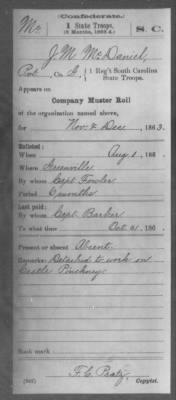 (Confederate.)
Mc 1 State Troops. S. C.
(6 Months, 1863-4.)
J. M. McDaniel,
Pvt, Co. 1 Reg't South Carolina
State Troops.
Appears on
Company Muster Roll
of the organization named above,
for Nov & Dec, 1863.
Enlisted:
When Aug 1, 186 .
Where Greenville
By whom Capt Fowler
Period 6 months
Last paid:
By whom Capt. Barker
To what time Oct 31, 186 .
Present or absent Absent
Remarks: Detached to work on
Castle Pinckney
Book mark:
F. C. Copyist.